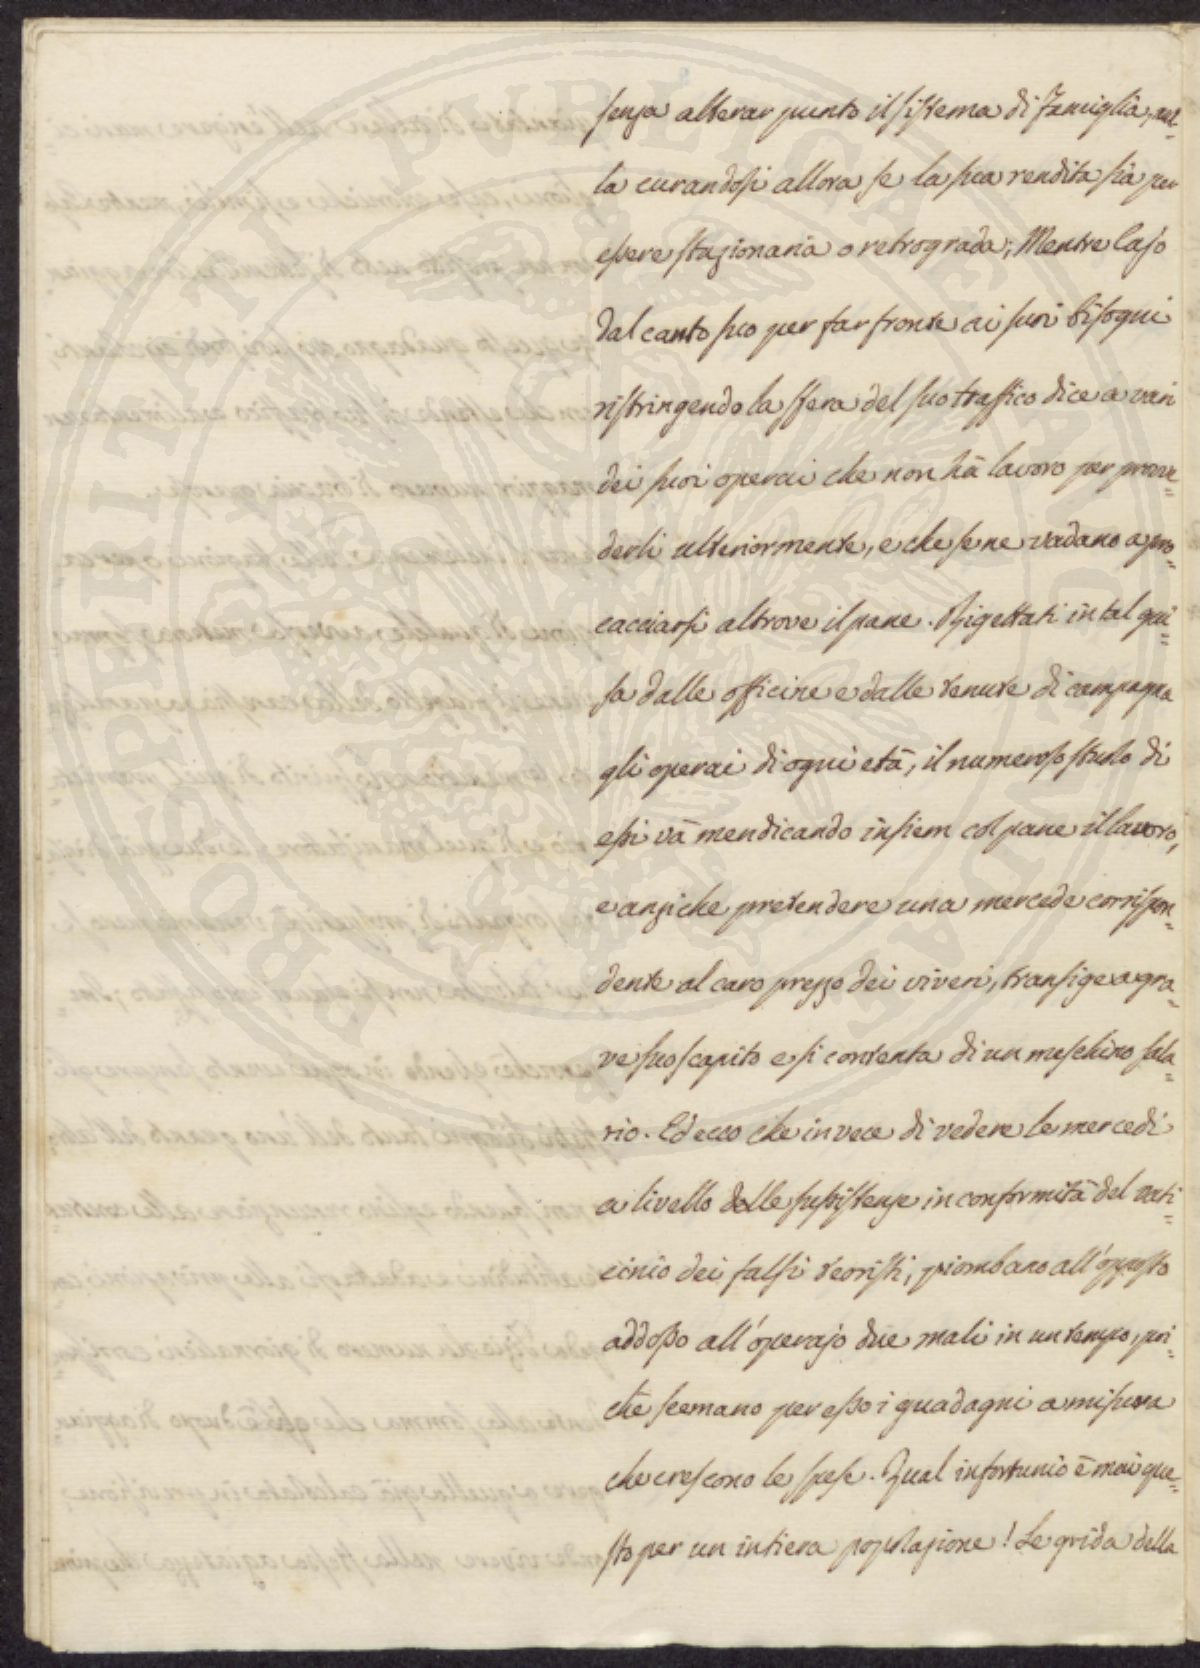 senza alterar punto il sistema di famiglia, nul-
la curandosi allora se la sua rendita sia per
essere stazionaria o retrograda; Mentre l'aso
dal canto suo per far fronte ai suoi bisogni
ristringendo la sfera del suo traffico dice a vari
dei suoi operai che non hà lavoro per prove=
derli ulteriormente, e che se ne vadano a pro=
cacciarsi altrove il pane. Rigettati in tal gui=
sa dalle officine e dalle tenute di campagna
gli operai di ogni età, il numeroso stuolo di
essi và mendicando insiem col pane il lavoro,
e anziche pretendere una mercede corrispon=
dente al caro prezzo dei viveri, transige a gra=
ve suo scapito e si contenta di un meschino sala=
rio. Ed ecco che invece di vedere le mercedi
a livello delle sussistenze in conformità del vati=
cinio dei falsi teoristi, piombano all'opposto
addosso all'operajo due mali in un tempo, poi=
chè scemano per esso i guadagni a misura
che crescono le spese. Qual infortunio è mai que=
sto per un intiera popolazione! Le grida della
PROSPERITATI PUBLICAE AUGENDAE